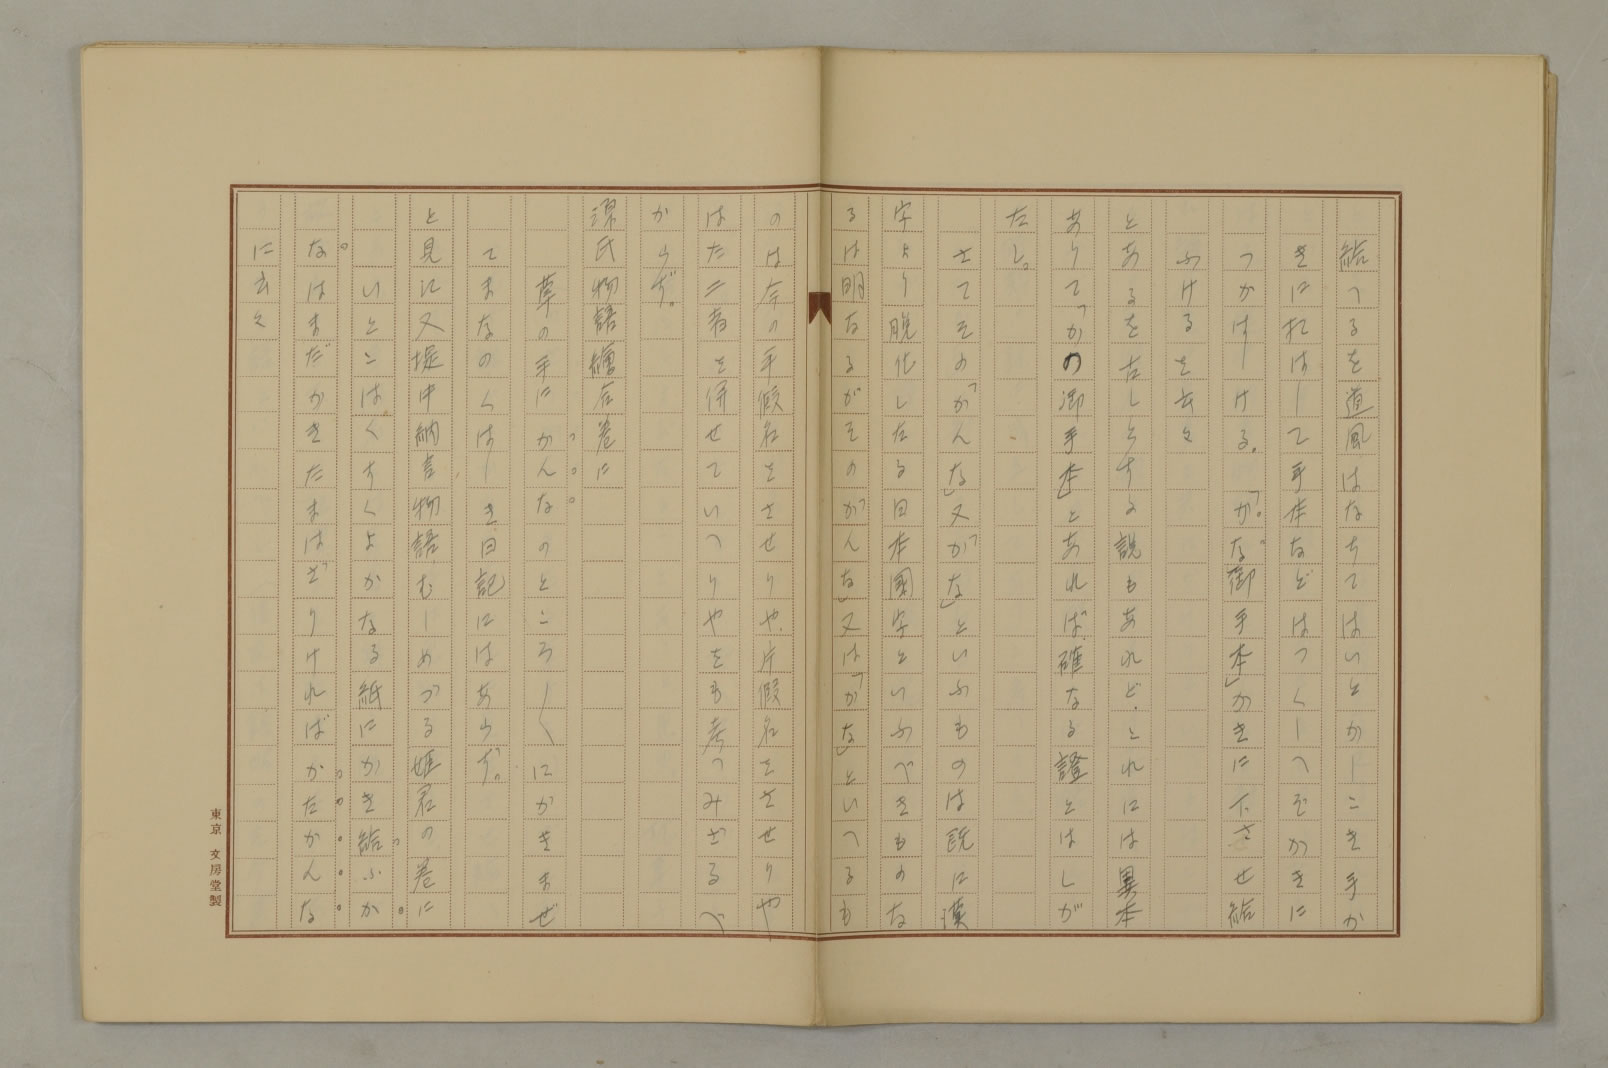 給へるを道風はなちてはいとかしこき手か
きにればして手本などはつくしへぞかきに
つかはしける。「かな御手本」かきに下させ給
ふけるを云々
とあるを古しとする説もあれど、これには異本
ありて「かの御手本」とあれば、確なる證とはしが
たし。
さてその「かんな」又「かな」といふものは既に漢
字より脱化したる日本國字といふべきものな
るは明なるがその「かんな」又は「かな」といへるも
のは今の手假名をさせりや、片假名をさせりや
はた二者を併せていへりやをも考へみざるべ
からず。
源氏物語繪合巻に
草の手にかんなのところ〴〵にかきまぜ
てまなのくはしき日記にはあらず。
と見に又堤中納言物語、むしめづる姫君の巻に
いとこはくすくよかなる紙にかき給ふか
なはまだかきたまはざりければかたかんな
に云々
東京 文房堂製